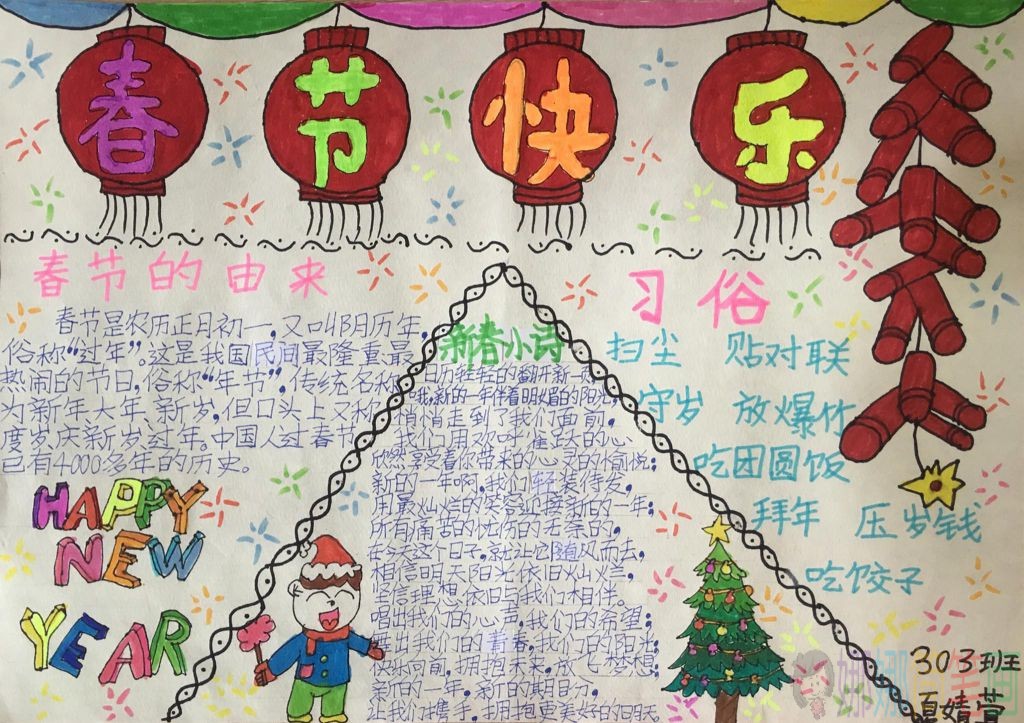 春节快乐
春节的由来
春节是农历正月初一,又叫阴历年,
俗称“过年”。这是我国民间最隆重、最
热闹的节日,俗称“年节”,传统名称
为新年、大年、新岁,但口头上又称
度岁、庆新岁、过年。中国人过春节
已有4000多年的历史。
HAPPY
NEW
YEAR
新春小诗
日历轻轻的翻开新一页
哦,新的一年伴着明媚的阳光
悄悄走到了我们面前,
我们用欢呼雀跃的心
欣然享受着你带来的心灵的愉悦;
新的一年啊,我们轻装待发,
用最灿烂的笑容迎接新的一年;
所有痛苦的忧伤的无奈的,
在今天这个日子,就让它随风而去,
相信明天阳光依旧灿烂,
坚信理想依旧与我们相伴。
唱出我们的心声,我们的希望;
舞出我们的青春,我们的阳光;
快快向前,拥抱未来,放飞梦想;
新的一年,新的期盼,
让我们携手,拥抱更美好的明天。
习俗
扫尘 贴对联
守岁 放爆竹
吃团圆饭
拜年 压岁钱
吃饺子
303班
夏婧莹